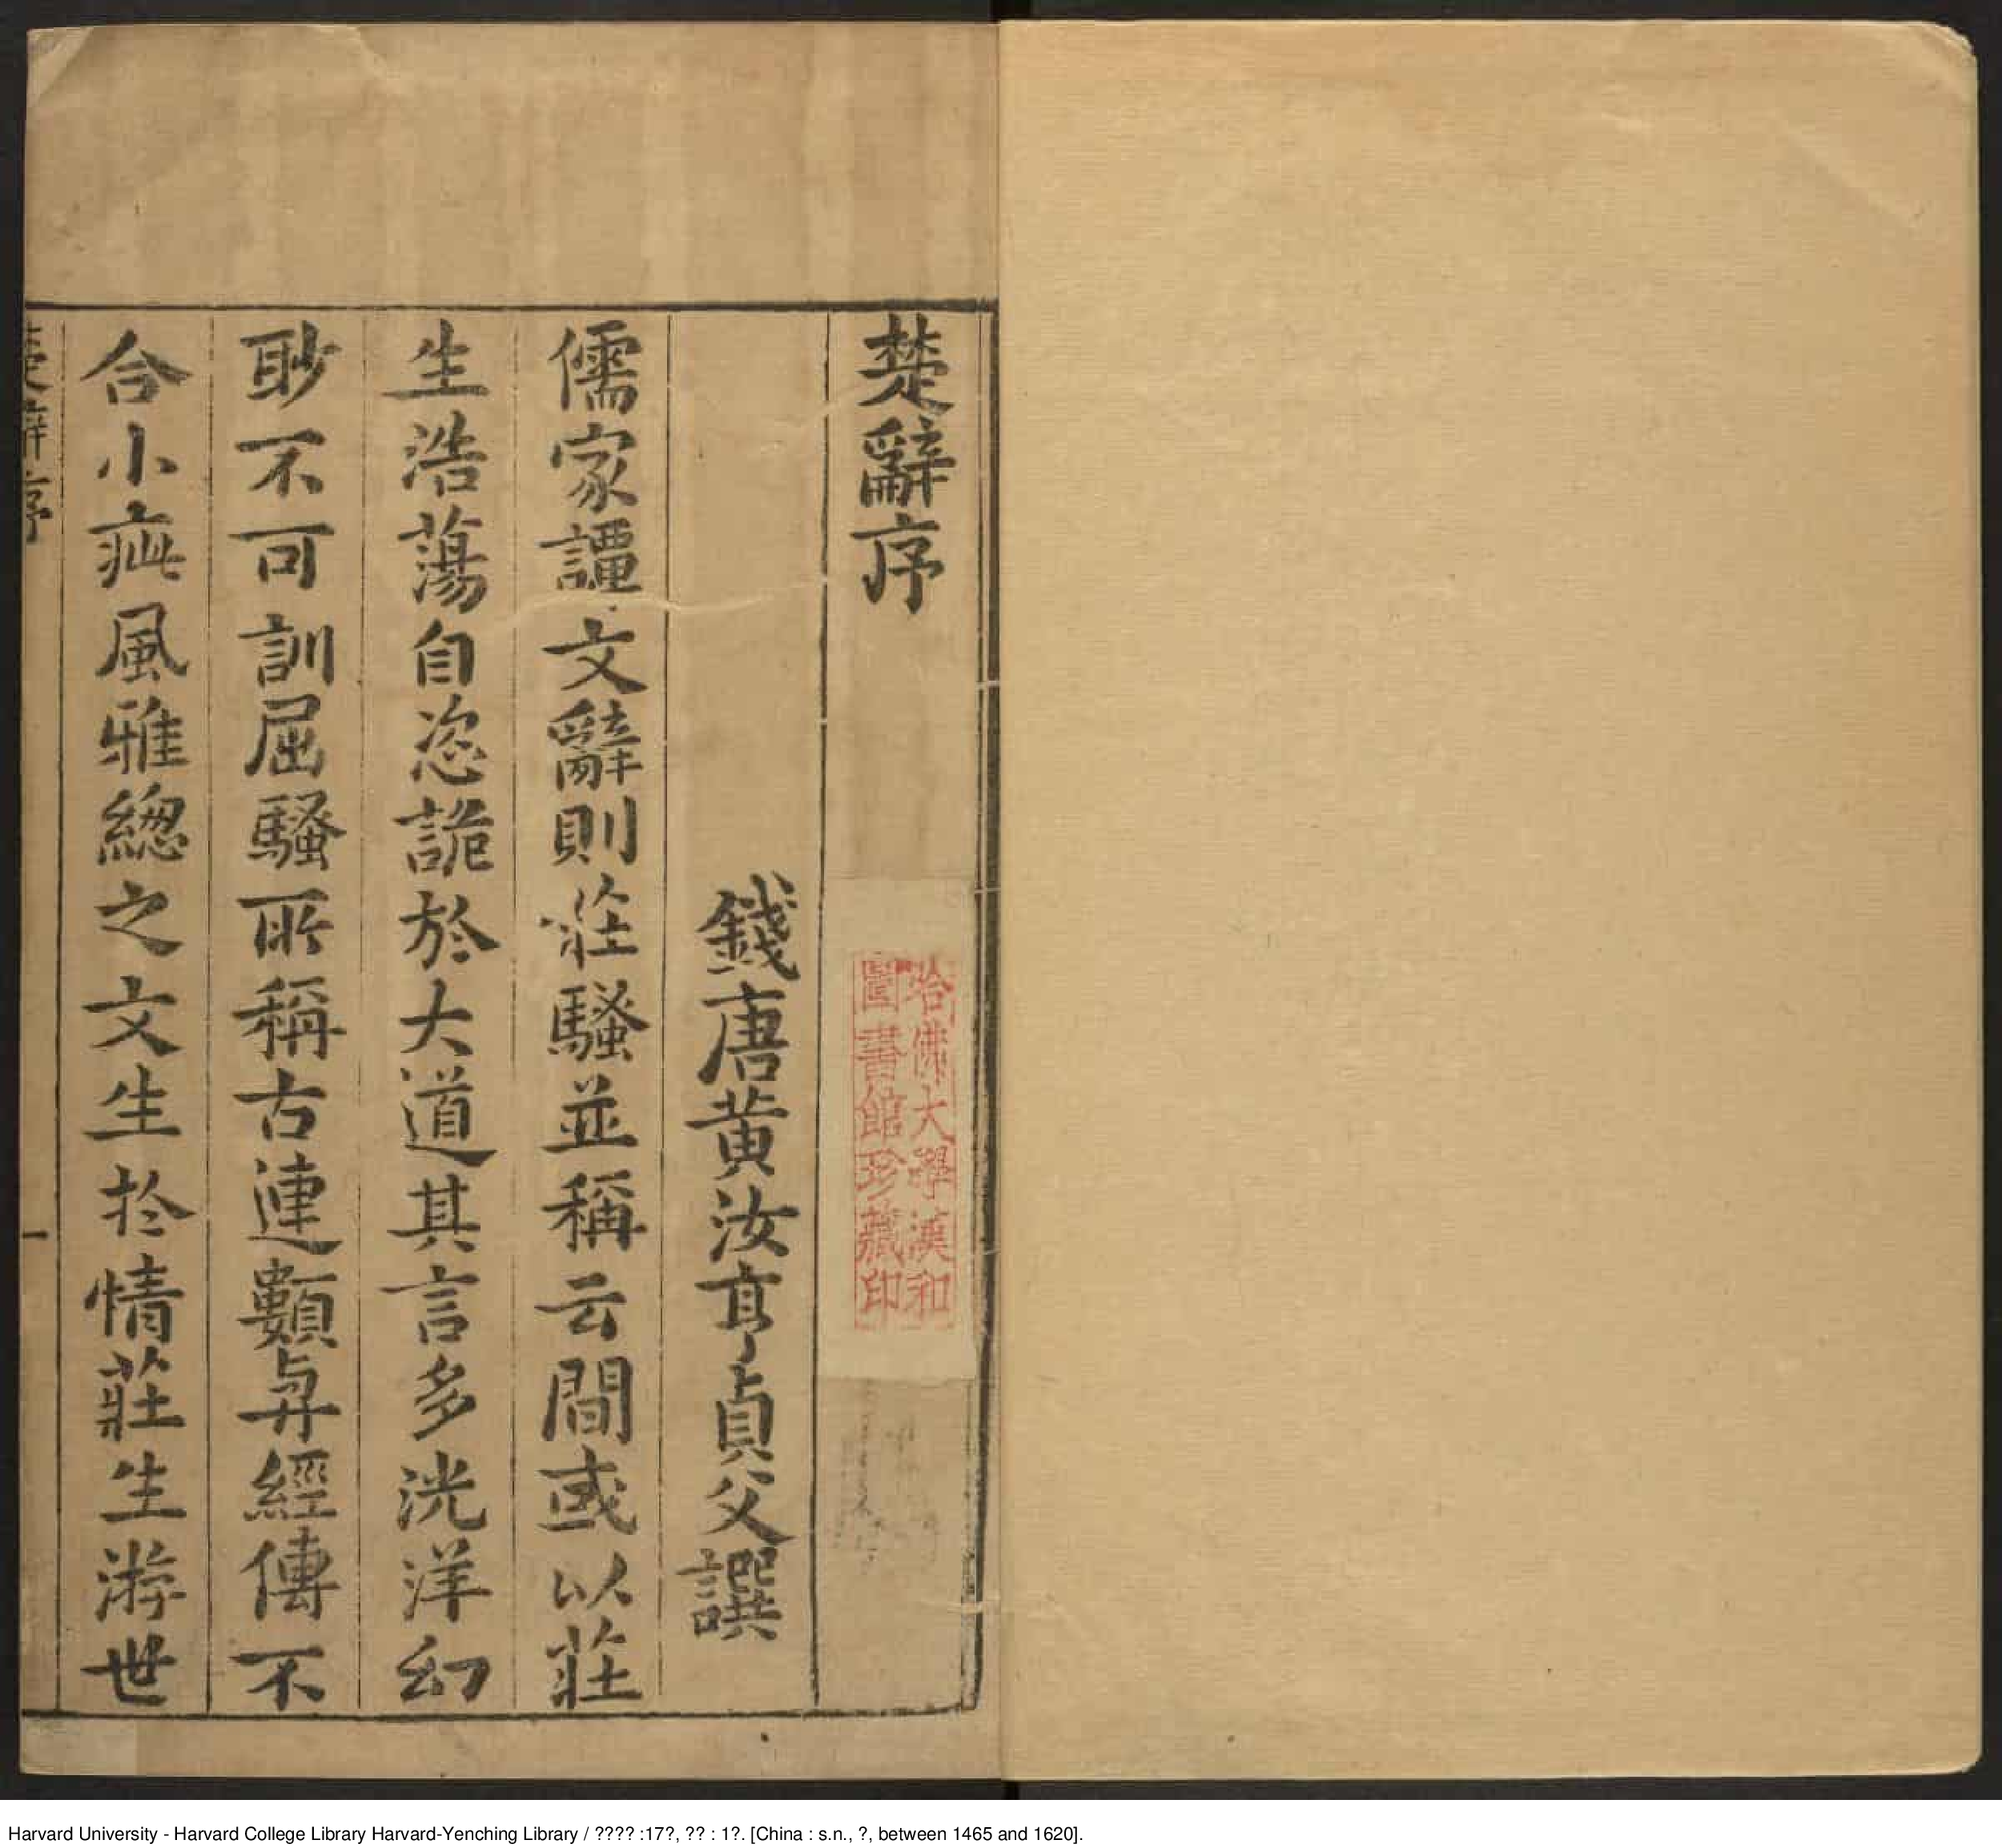 楚辭序
錢唐黃汝亨貞父譔
儒家譚文辭則莊騷並稱云間或以莊
生浩蕩自恣詭於大道其言多洸洋幻
眇不可訓屈騷所稱古連類與經傳不
合小疵風雅總之文生於情莊生游世
楚辭序
一
哈佛大學漢和
圖書館珍藏印
Harvard University - Harvard College Library Harvard-Yenching Library / ???? :17?, ?? : 1?. [China : s.n., ?, between 1465 and 1620].